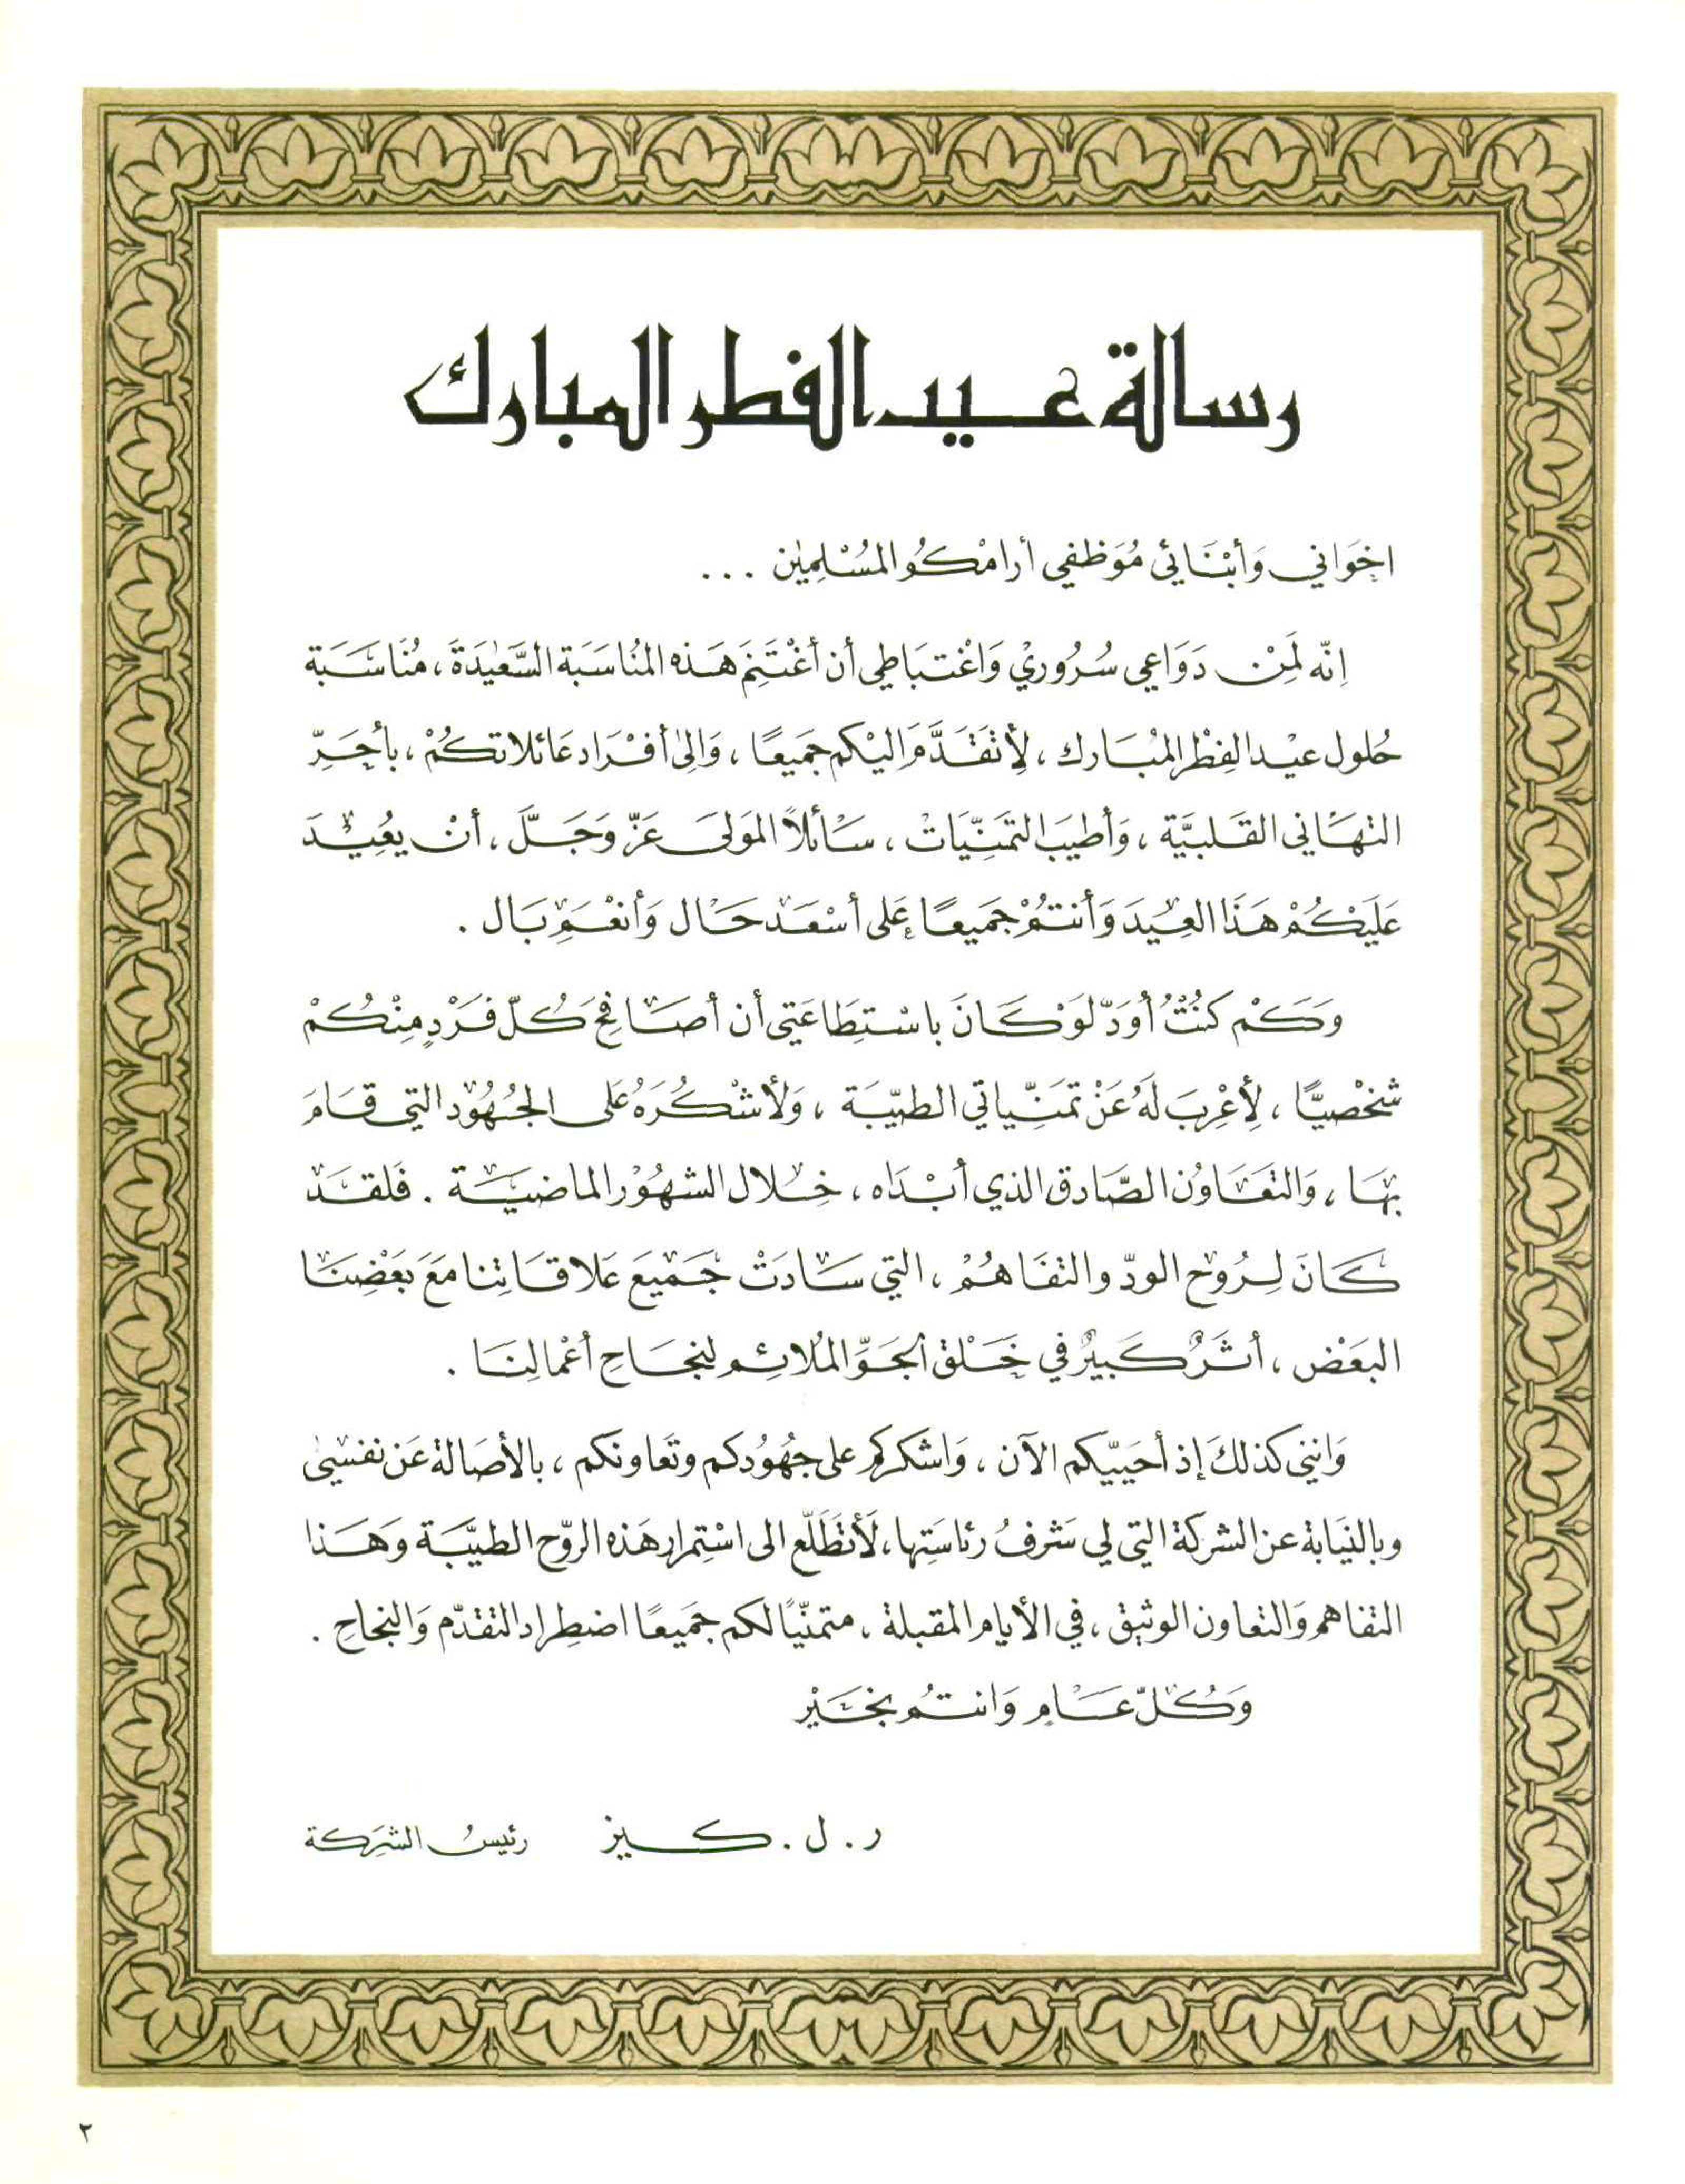 رسالة عيد الفطر المبارك
اخوَاني وَأبْنَائي مُوَظفي أرامْكُو المُسْلِمِين ...
اِنّه لَمِنْ دَوَاعي سُرُوريْ وَاغْتبَاطي أن أغْتَنِمَ هَذه المنُاسَبَة السَّعيْدَة، مُنَاسَبَة
حُلول عيْد الفِطْر المبُارك، لِأتقَدَّمَ اليْكم جَميعًا، وَالى أفْرَاد عَائلاتكُمْ، بأحَرِّ
التهَاني القَلبيَّة، وَأطيَب التمَنيَّاتْ، سَائلاً المَولىَ عَزّ وَجَلَّ، أنْ يعُيْدَ
عَليَكُمْ هَذَا العِيدَ وَأنتمُ جَميعًا عَلى أسْعَد حَال وَأنعْمَ بَال.
وَكَمْ كنُتُ أوَدّ لَوْ كَانَ باسْتِطَاعَتي أن أصَافحَ كُلّ فَرْدٍ مِنْكُمْ
شخْصيًّا، لِأعْرِبَ لَهُ عَنْ تمَنيّاتي الطيّبَة، وَلأشْكُرَهُ عَلى الجُهُوْد التي قَامَ
بهَا، وَالتعَاوُن الصَّادق الذي أبْدَاه، خِلال الشهُوْر الماضيَة. فَلقَدْ
كَانَ لِرُوْح الودّ والتفَاهُمْ، التي سَادَتْ جَميْعَ عَلاقَاتِنا مَعَ بَعْضِنَا
البَعْض، أثَرٌ كَبيرٌ في خَلْق الجَوِّ المُلائِم لنجَاحِ أعْمالِنَا.
وَانني كذلكَ إذ أحَييّكم الآن، وَاشكركم على جهُوُدكم وتَعاونكم، بالأصَالة عَن نفسْي
وبالنيَابة عن الشركة التي لي شَرفُ رئاسَتِها، لَأتطَلّع الى اسْتِمرار هَذه الروّح الطيّبَة وَهَذا
التفاهم وَالتعاون الوثيق، في الأيام المقبلة، متمنّيًا لكم جَميعًا اضطِراد التقدّم وَالنجاحِ.
وَكُلّ عَامٍ وَانتمُ بخَيْر
ر. ل. كيز رئيسُ الشرَكة
٢